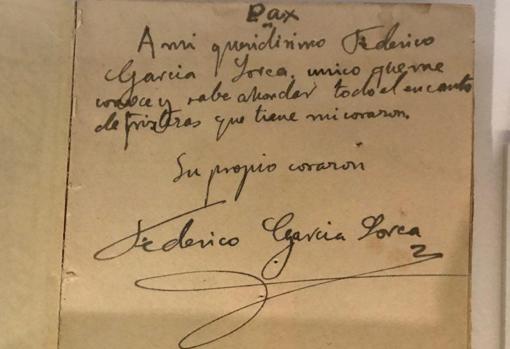 Pax
A mi queridisimo Federico
Garcia Lorca, unico que me
conoce y sabe ahondar todo el encanto
de tristezas que tiene mi corazon.
Su propio corazon
Federico Garcia Lorca